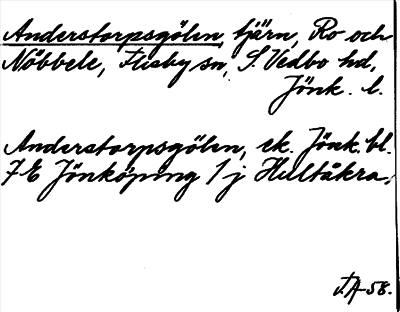 Anderstorpsgölen tjärn, Ro och
Nöbbele, Flisby sn, S. Vedbo hd,
Jönk. l.
Anderstorpsgölen, ek. Jönk. bl.
7E Jönköping 1 j Hultåkra,
J.A 58.